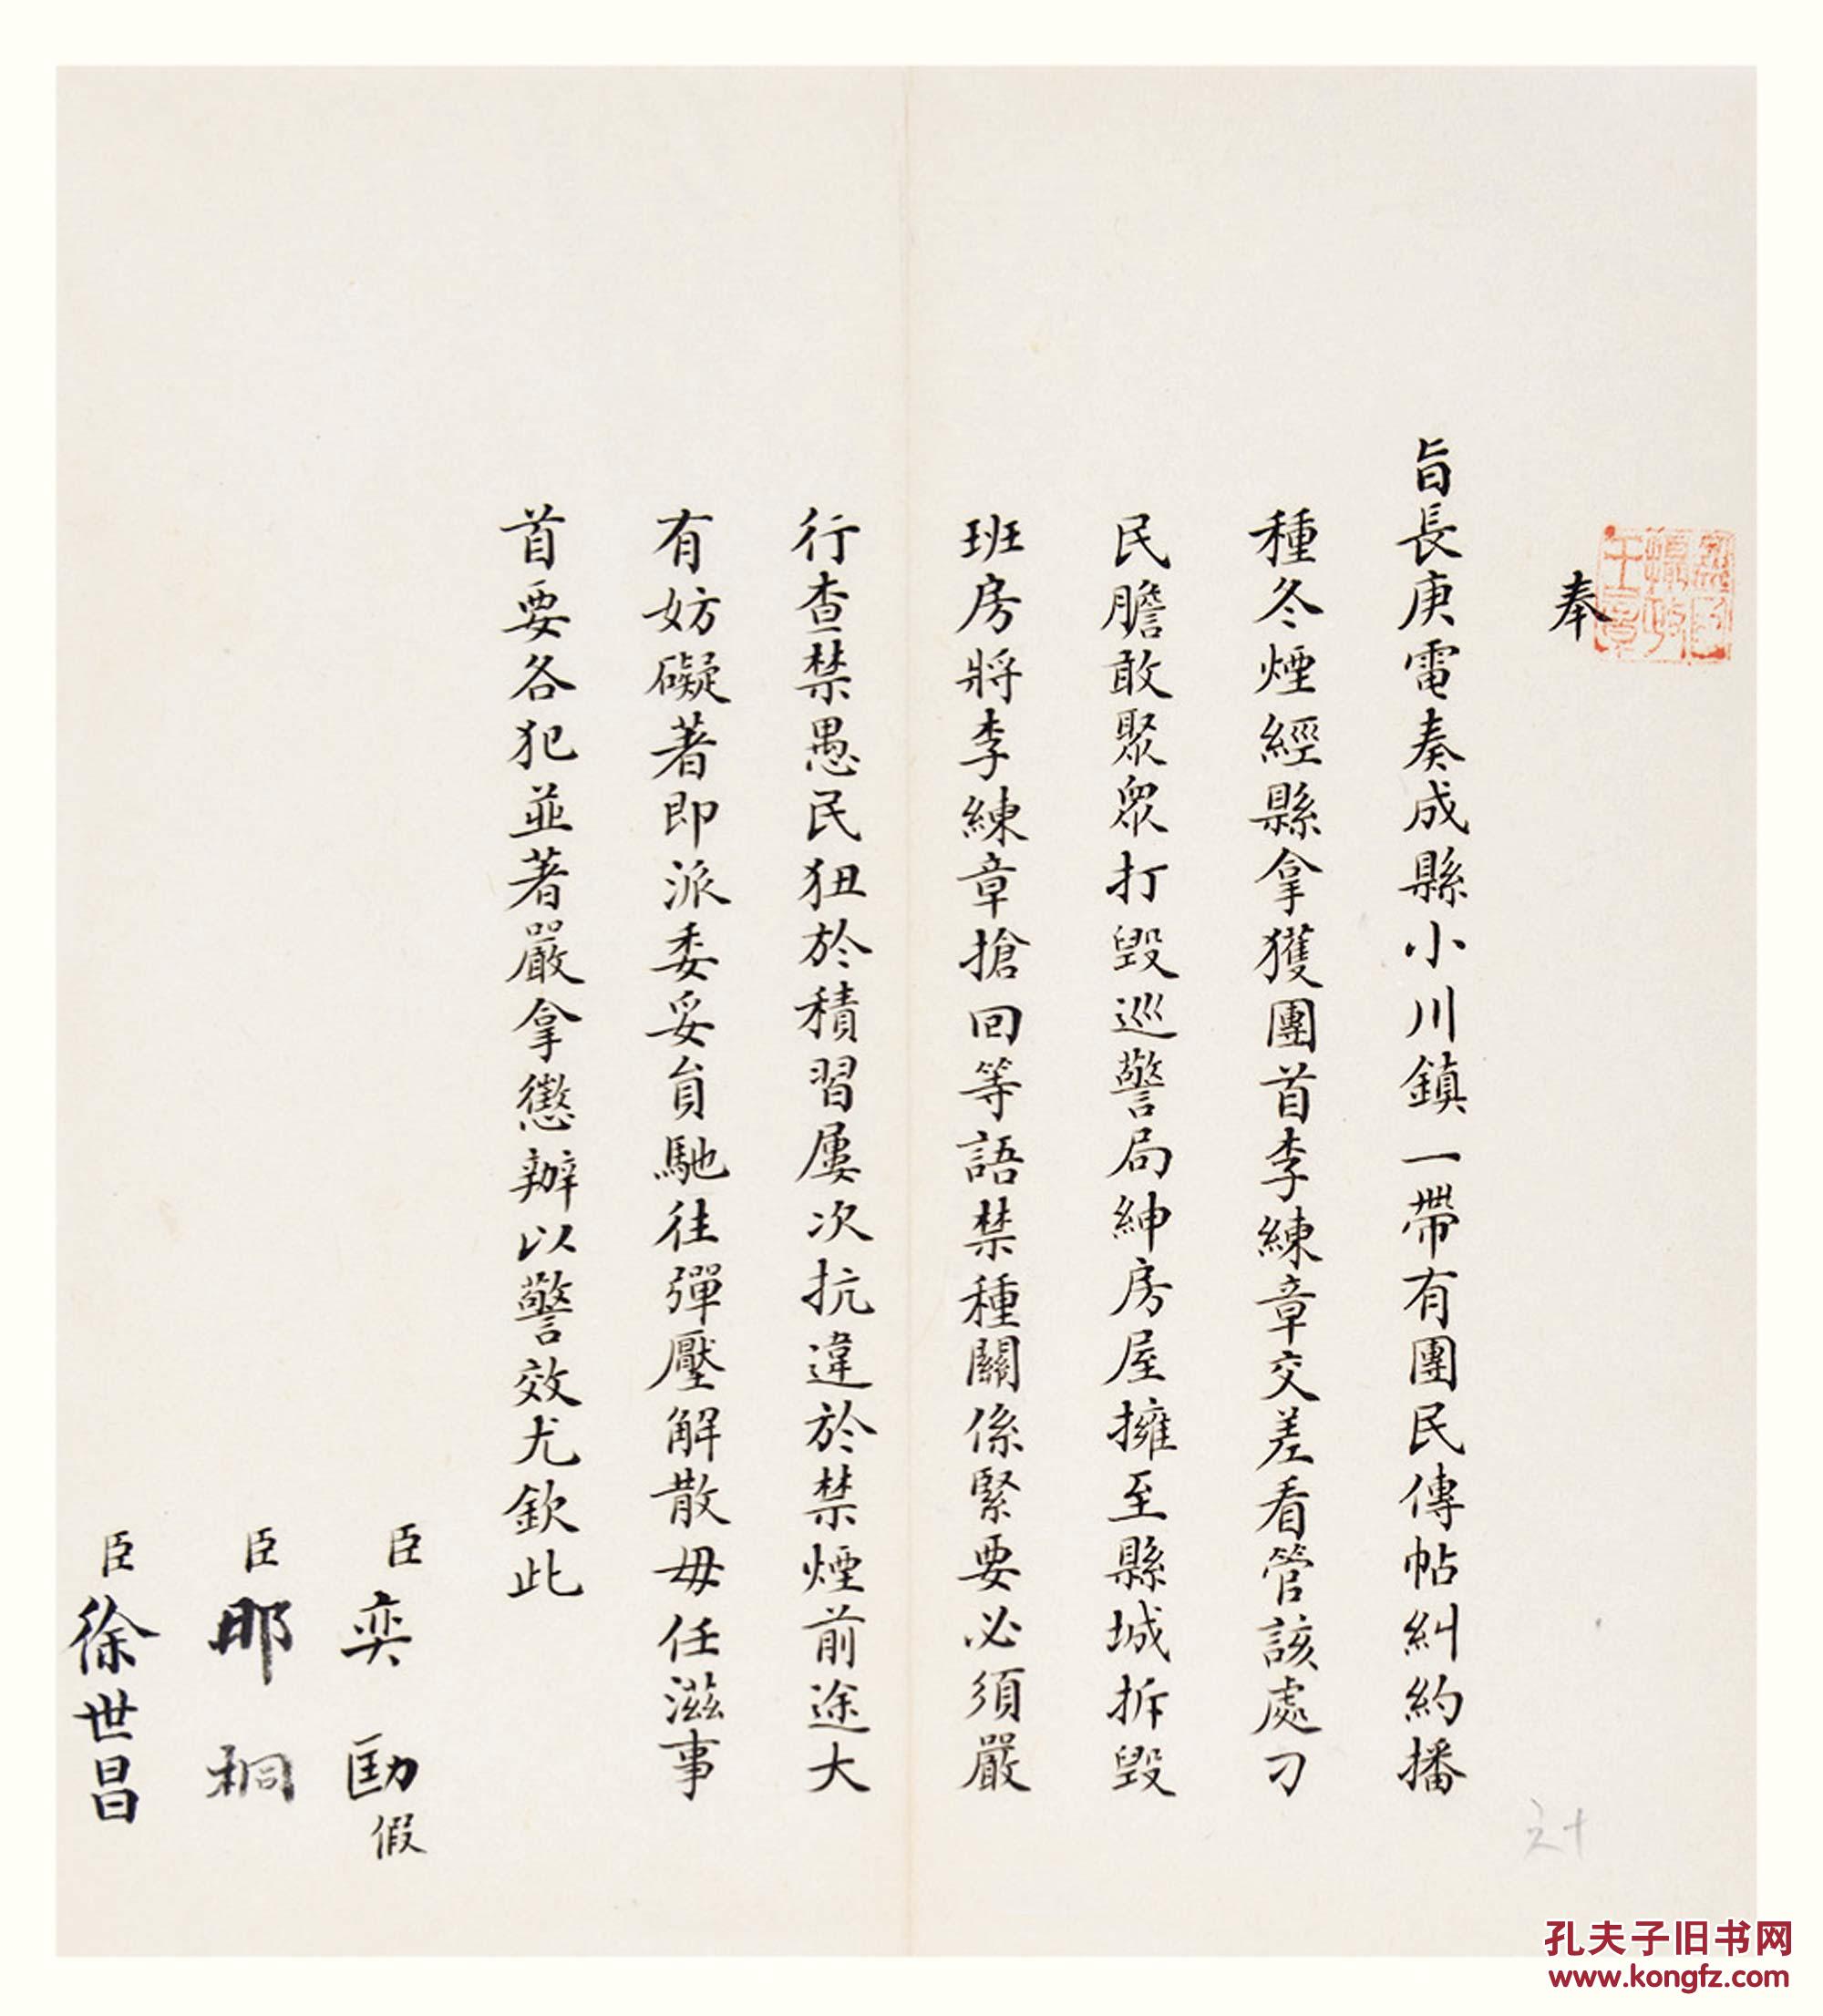 奉
旨長庚電奏成縣小川鎮一帶有團民傳帖糾約播
種冬煙經縣拿獲團首李練章交差看管該處刁
民膽敢聚眾打毀巡警局紳房屋擁至縣城拆毀
班房將李練章搶回等語禁種關係緊要必須嚴
行查禁愚民狃於積習屢次抗違於禁煙前途大
有妨礙著即派委妥員馳往彈壓解散毋任滋事
首要各犯並著嚴拿懲辦以警效尤欽此
臣奕劻假
臣那桐
臣徐世昌
孔夫子旧书网
www.kongfz.com